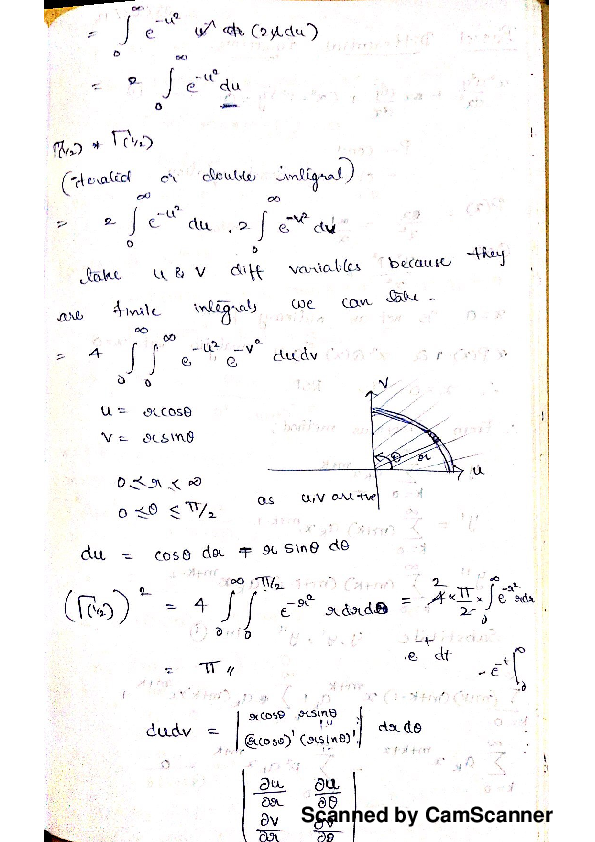 = ∫₀^∞ e^{-u²} u⁻¹ (2u du)
= 2 ∫₀^∞ e^{-u²} du
Γ(1/2) * Γ(1/2)
(iterated or double integral)
= 2 ∫₀^∞ e^{-u²} du . 2 ∫₀^∞ e^{-v²} dv
take u & v diff variables because they
are finite integrals we can take.
= 4 ∫₀^∞ ∫₀^∞ e^{-u²} e^{-v²} du dv
v
u = r cosθ
v = r sinθ
θ r u
0 ≤ r < ∞
0 ≤ θ ≤ π/2
as u, v are +ve
du = cosθ dr - r sinθ dθ
(Γ(1/2))² = 4 ∫₀^∞ ∫₀^{π/2} e^{-r²} r dr dθ = 4² * π/2 * ∫₀^∞ e^{-r²} r dr
= π //
e^{-t} dt - e^{-t} |₀^∞
du dv = | r cosθ r sinθ (r cosθ)' (r sinθ)' | dr dθ
| ∂u/∂r ∂u/∂θ
∂v/∂r ∂v/∂θ |
Scanned by CamScanner